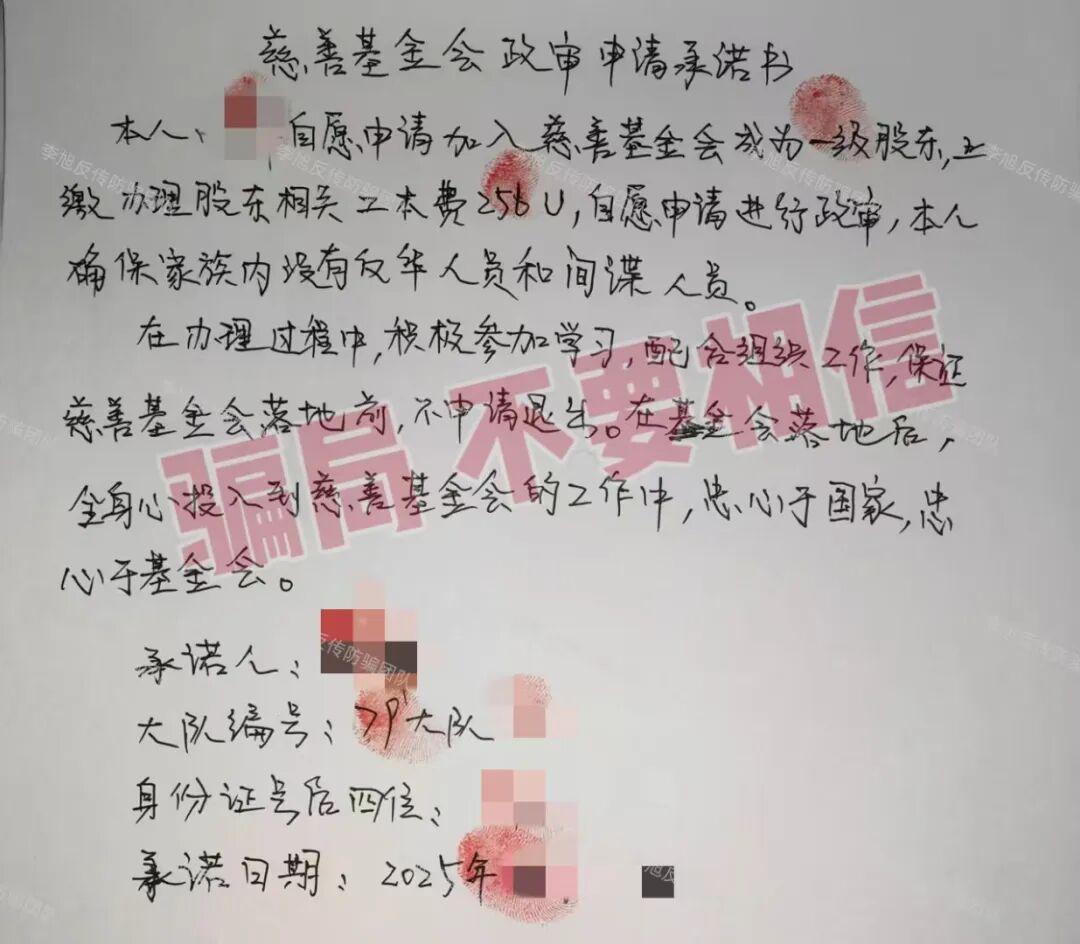 慈善基金会政审申请承诺书
本人、自愿申请加入慈善基金会成为一级股东,上
缴办理股东相关工本费256U,自愿申请进行政审,本人
确保家族内没有反华人员和间谍人员。
在办理过程中,积极参加学习,配合组织工作,保证
慈善基金会落地前,不申请退出。在基金会落地后,
全身心投入到慈善基金会的工作中,忠心于国家,忠
心于基金会。
骗局 不要相信
承诺人:
大队编号:79大队
身份证号后四位:
承诺日期:2025年
李旭反传防骗团队